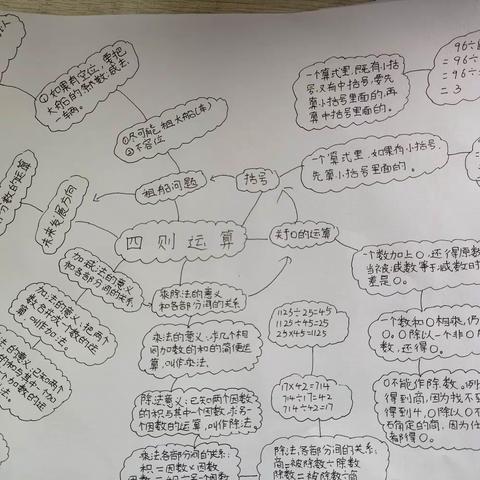 ①如果有空位，要把
大船的辆数减去
一辆。
①尽可能租大船(车)
②不空位
租船问题
括号
一个算式里，既有小括
号，又有中括号，要先
算小括号里面的，再
算中括号里面的。
96÷
=96÷
=96÷
=3
一个算式里，如果有小括号，
先算小括号里面的。
未来发展方向
四则运算
关于0的运算
加减法的意义
和各部分间的关系
乘除法的意义
和各部分间的关系
一个数加上0，还得原数
当被减数等于减数时
差是0。
加法的意义：把两个
数合并成一个数的运
算，叫作加法。
乘法的意义：求几个相
同加数的和的简便运
算，叫作乘法。
1125÷25=45
1125÷45=25
25×45=1125
一个数和0相乘，仍
0。0除以一个非0
数，还得0。
除法意义：已知两个因数
的积与其中一个因数，求另
一个因数的运算，叫作除法。
17×42=714
714÷17=42
714÷42=17
0不能作除数。例
得到商，因为找不到
得到4，0除以0不
确定的商，因为任
都得0。
乘法各部分间的关系：
积=因数×因数
因数=积÷另一个因数
除法各部分间的关系：
商=被除数÷除数
除数=被除数÷商